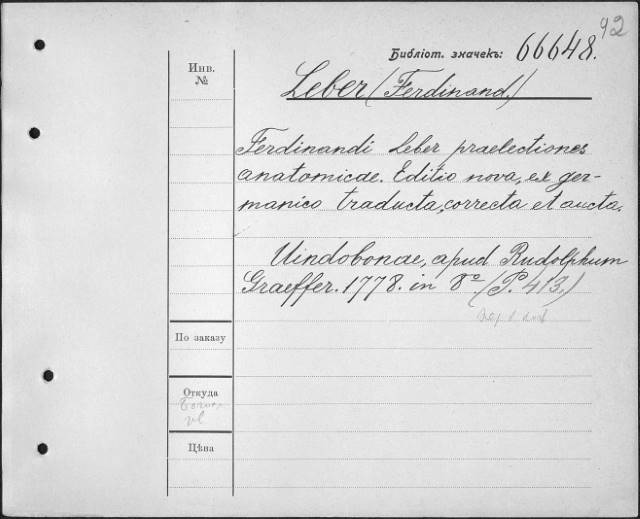 92
Библіот. значекъ: 66648.
Инв.
№
Leber (Ferdinand.)
Ferdinandi Leber praelectiones
anatomicae. Editio nova, ex ger-
manico traducta, correcta et aucta.
Uindobonae, apud Rudolphum
Graeffer. 1778. in 8º (P. 413.)
По заказу
Откуда
Цѣна